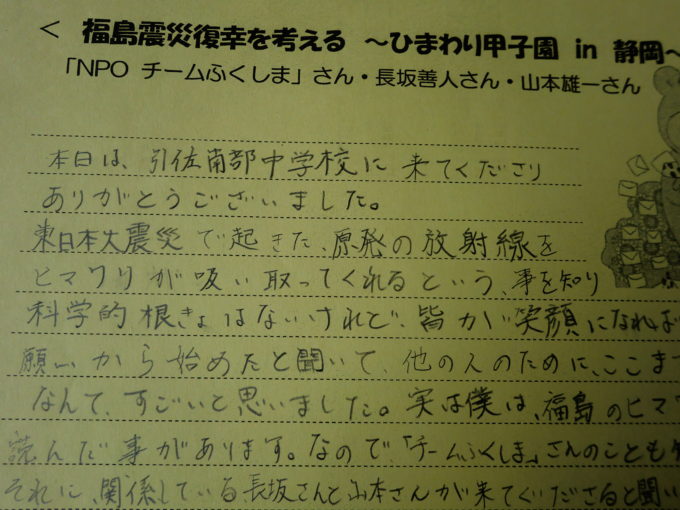 < 福島震災復幸を考える ～ひまわり甲子園 in 静岡～
「NPO チームふくしま」さん・長坂善人さん・山本雄一さん
本日は、引佐南部中学校に来てくださり
ありがとうございました。
東日本大震災で起きた、原発の放射線を
ヒマワリが吸い取ってくれるという、事を知り
科学的根きょはないけれど、皆が笑顔になれば
願いから始めたと聞いて、他の人のために、ここま
なんて、すごいと思いました。実は僕は、福島のヒマワ
読んだ事があります。なので、「チームふくしま」さんのことも
それに、関係している長坂さんと山本さんが来てくださると聞い